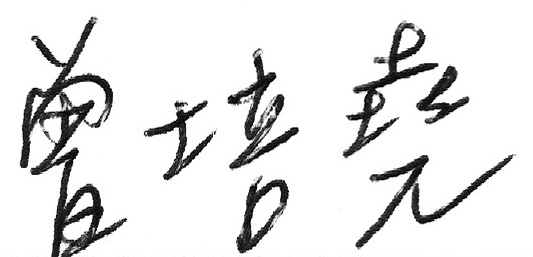 曾培堯